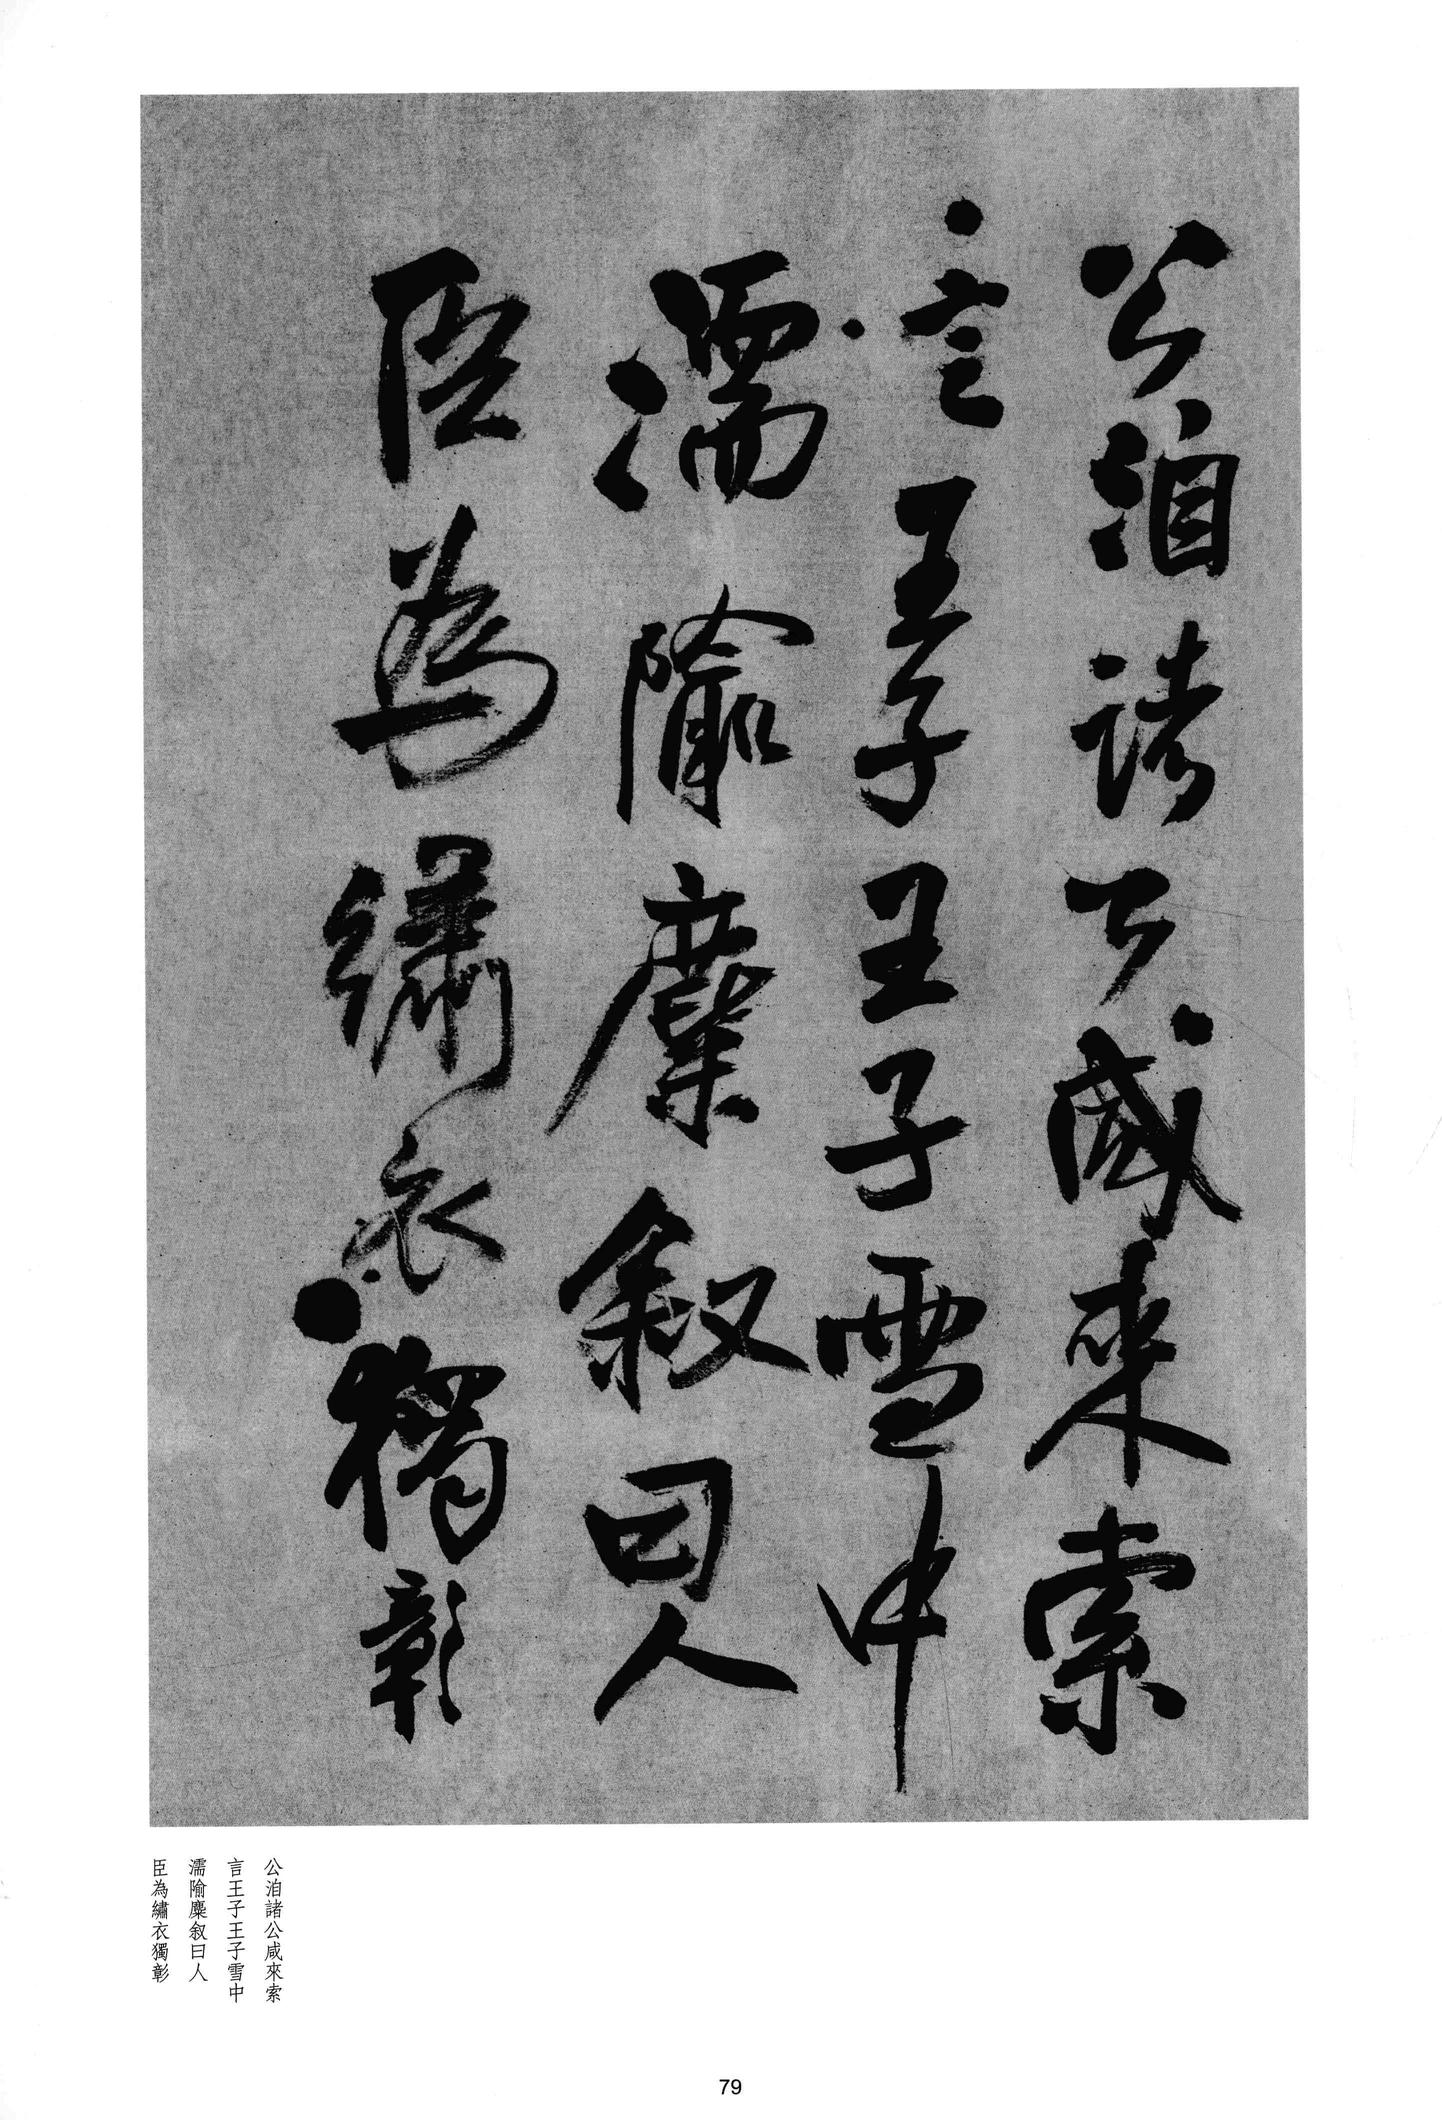 公洎諸公咸來索
言王子王子雪中
濡隃麋叙曰人
臣為繡衣獨彰
公洎諸公咸來索
言王子王子雪中
濡隃麋叙曰人
臣為繡衣獨彰
79